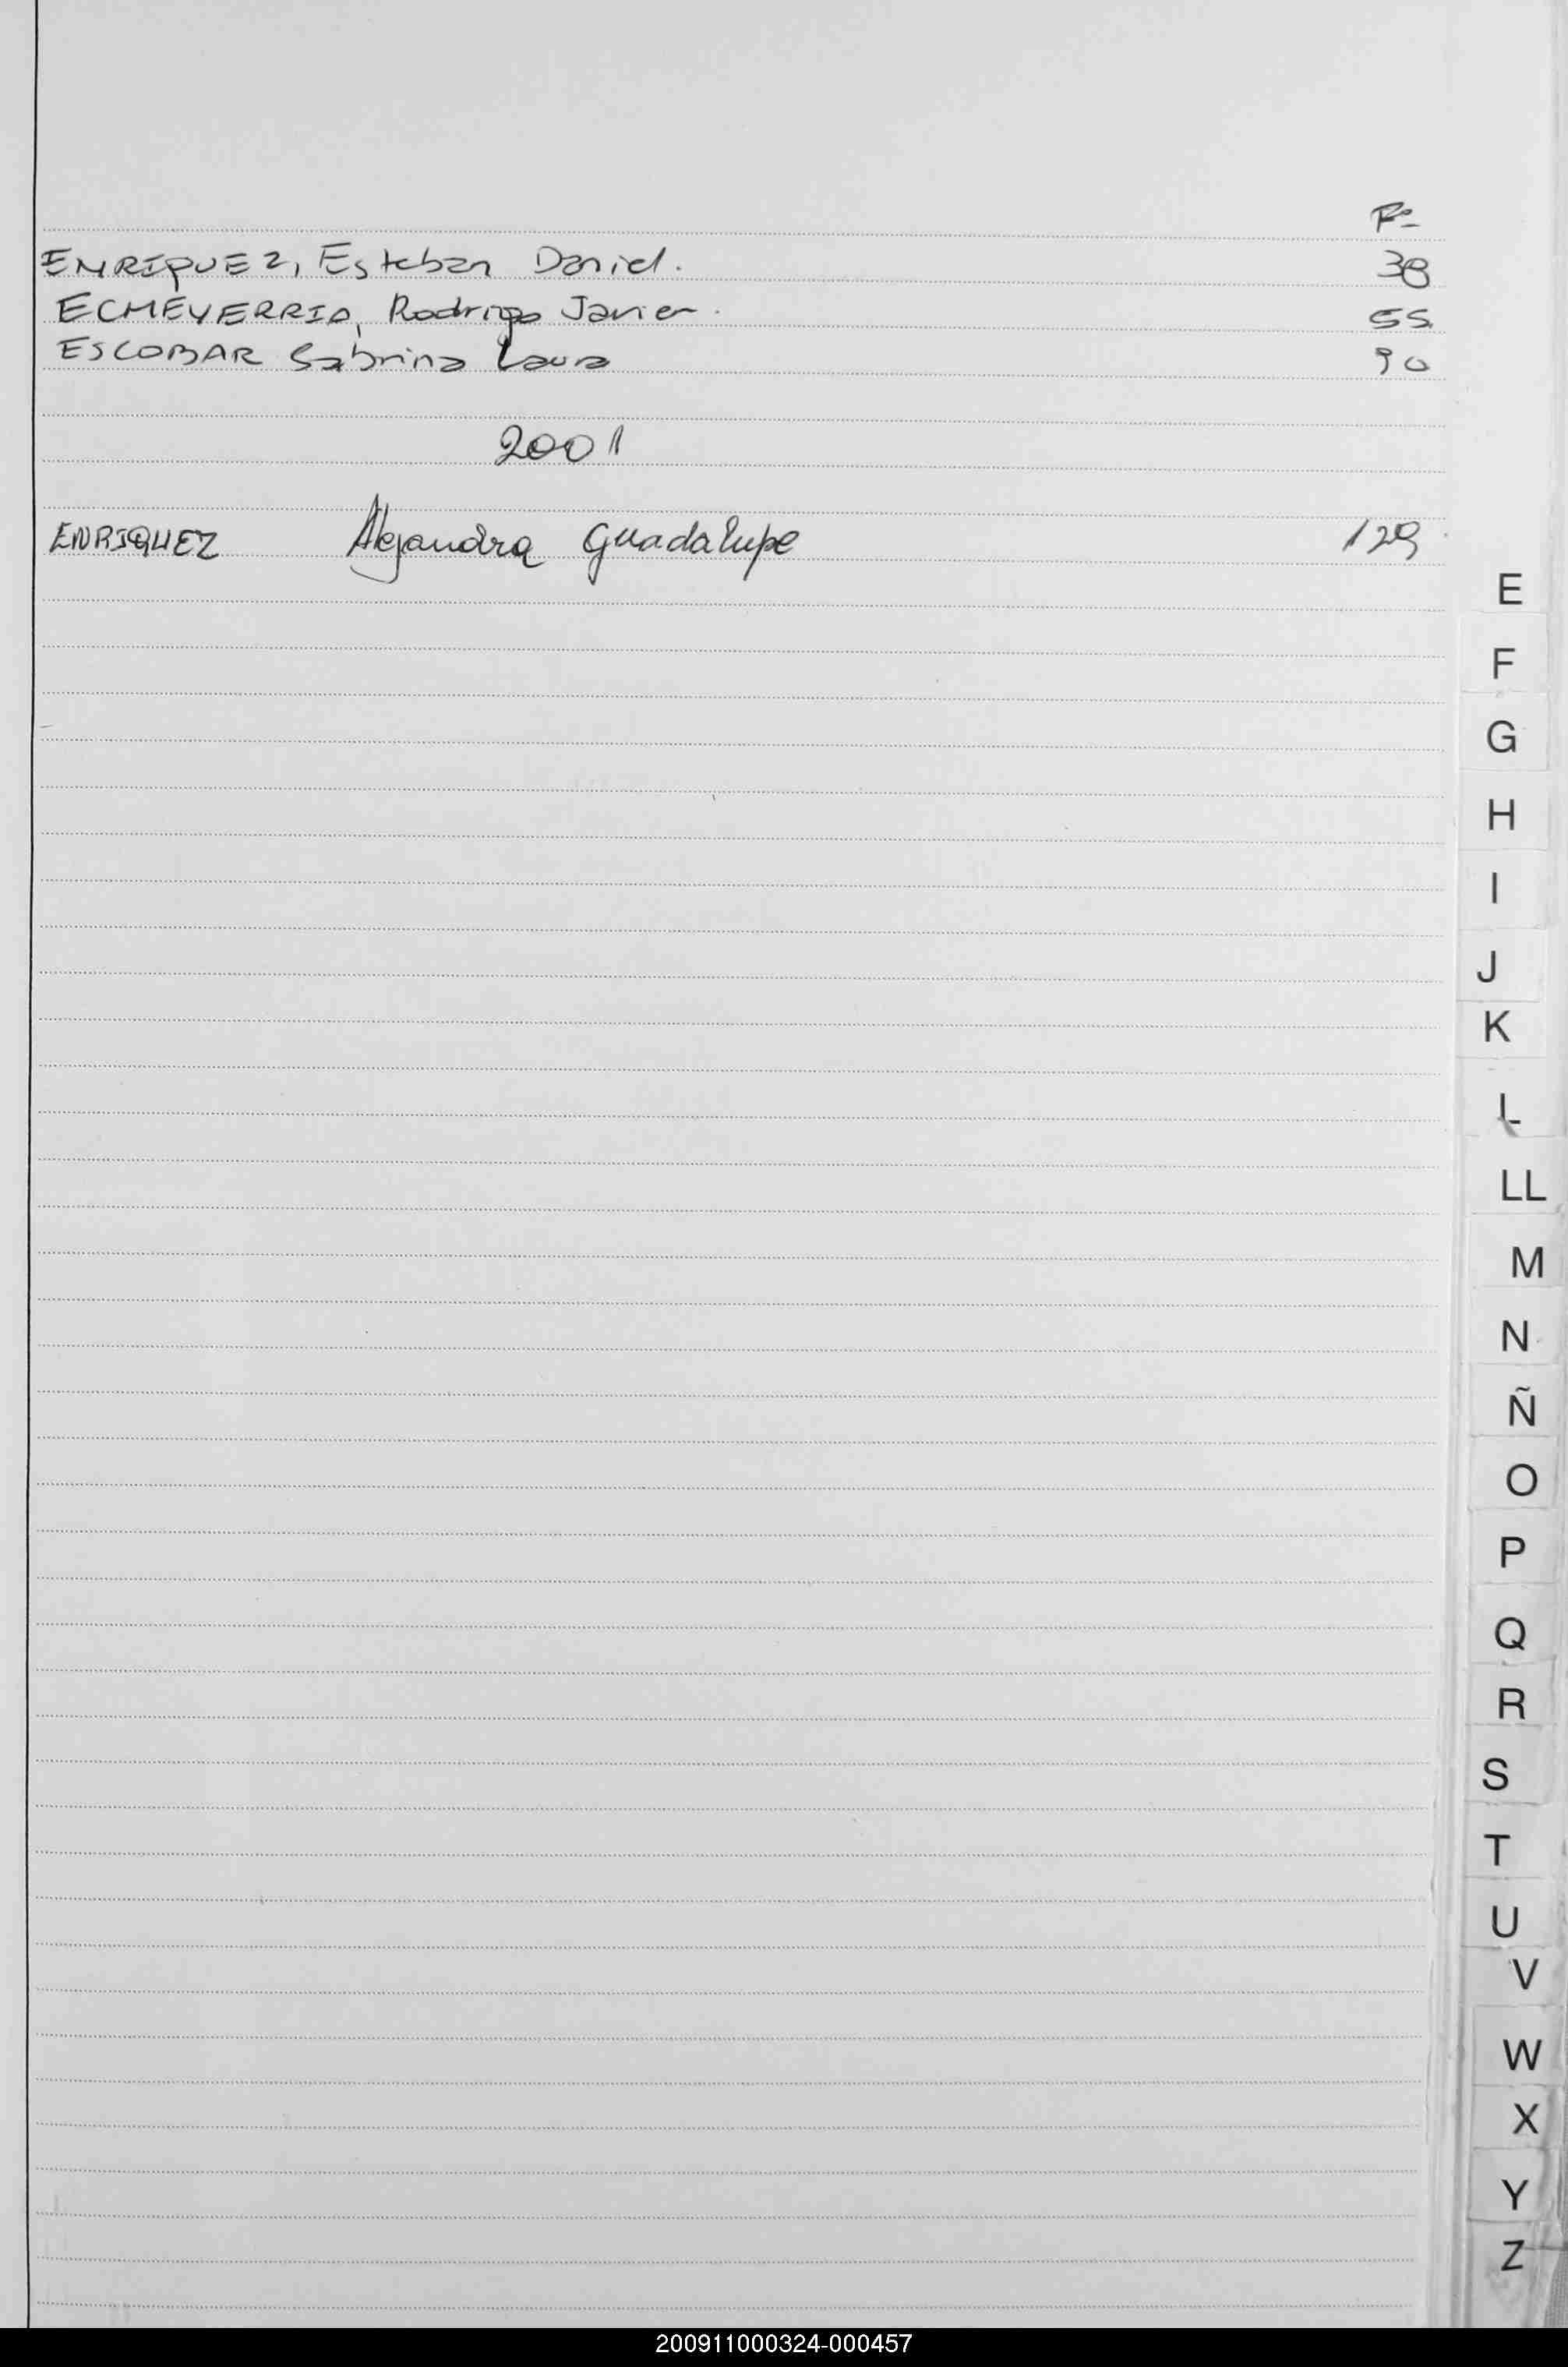 Fº
ENRIQUEZ, Esteban Daniel. 38
ECHEVERRIA, Rodrigo Javier. 55
ESCOBAR Sabrina Laura 90
2001
ENRIQUEZ Alejandra Guadalupe 129
E
F
G
H
I
J
K
L
LL
M
N
Ñ
O
P
Q
R
S
T
U
V
W
X
Y
Z
200911000324-000457